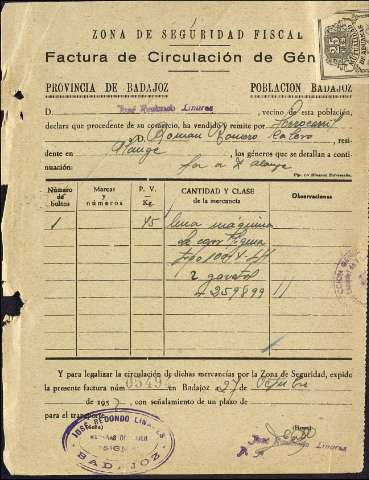 ZONA DE SEGURIDAD FISCAL
Factura de Circulación de Gén
25
PROVINCIA DE BADAJOZ POBLACION BADAJOZ
D. José Redondo Linares, vecino de esta población,
declara que procedente de su comercio, ha vendido y remite por ferrocarril
a D. Román Romero, resi-
dente en Alange, los géneros que se detallan a conti-
nuación:
Número de bultos Marcas y números P. V. Kg. CANTIDAD Y CLASE de la mercancía Observaciones
1 45 Una máquina
de coser Sigma
tipo
2 gavetas
259899
Y para legalizar la circulación de dichas mercancías por la Zona de Seguridad, expide
la presente factura núm. 0549 en Badajoz 27 Octubre
de 195 , con señalamiento de un plazo de
para el transporte.
(Sello) (Firma)
JOSÉ REDONDO LINARES
MÁQUINAS DE COSER
SIGMA
BADAJOZ
José Redondo Linares